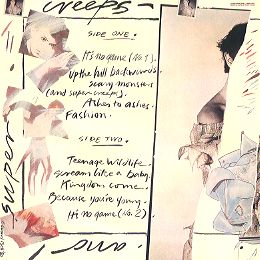 creeps-
SIDE ONE.
It's no game (No 1).
up the hill backwards.
scary monsters
(and super creeps).
Ashes to ashes.
Fashion.
SIDE TWO.
Teenage Wildlife
scream like a baby.
Kingdom come.
Because you're young.
It's no game (No. 2)
super
and